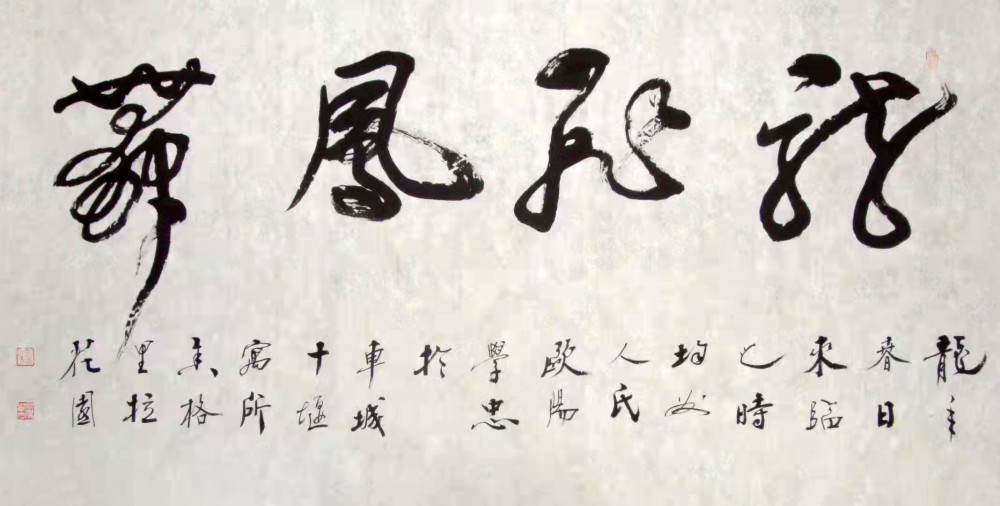 龍飛鳳舞
龍年
春日
來臨
已時
均州
人氏
歐陽
學忠
於
車城
十堰
寓所
香格
里拉
花園